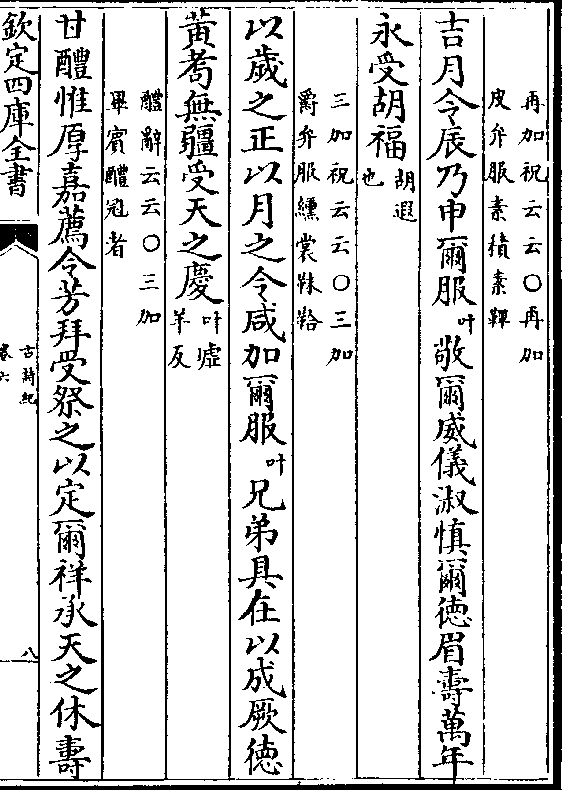 再加祝云云○再加
皮弁服素積素鞸
吉月令辰乃申爾服叶敬爾威儀淑慎爾德眉壽萬年
永受胡福胡遐
也
三加祝云云○三加
爵弁服纁裳韎韐
以歲之正以月之令咸加爾服叶兄弟具在以成厥德
黃耉無疆受天之慶叶墟
羊反
醴辭云云○三加
畢賓醴冠者
甘醴惟厚嘉薦令芳拜受祭之以定爾祥承天之休壽
欽定四庫全書
古詩紀
卷六
八